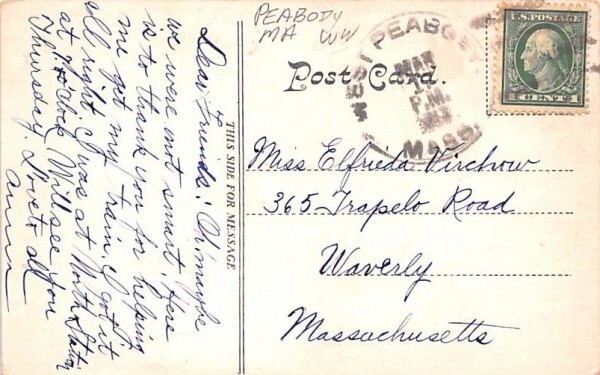 PEABODY
MA WW
WEST PEABODY
MAR
P.M.
MASS.
U.S. POSTAGE
1 CENT 1
Post Card.
THIS SIDE FOR MESSAGE
Dear Friends: Oh maybe
we were not smart. Here
is to thank you for helping
me get my train. I got it
all right. I was at North Station
at 7 o'clock. Will see you
Thursday. Love to all
Anna
Miss Elfrieda Virchow
365 Trapelo Road
Waverly
Massachusetts